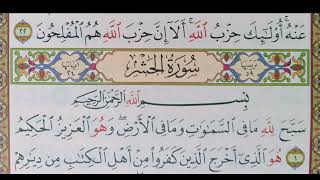 عَنْهُ ۚ أُولَٰئِكَ حِزْبُ اللَّهِ ۚ أَلَا إِنَّ حِزْبَ اللَّهِ هُمُ الْمُفْلِحُونَ ٢٢
سُورَةُ الْحَشْرِ
بِسْمِ اللَّهِ الرَّحْمَٰنِ الرَّحِيمِ
سَبَّحَ لِلَّهِ مَا فِي السَّمَٰوَٰتِ وَمَا فِي الْأَرْضِ ۖ وَهُوَ الْعَزِيزُ الْحَكِيمُ ١
هُوَ الَّذِي أَخْرَجَ الَّذِينَ كَفَرُوا مِنْ أَهْلِ الْكِتَٰبِ مِنْ دِيَٰرِهِمْ